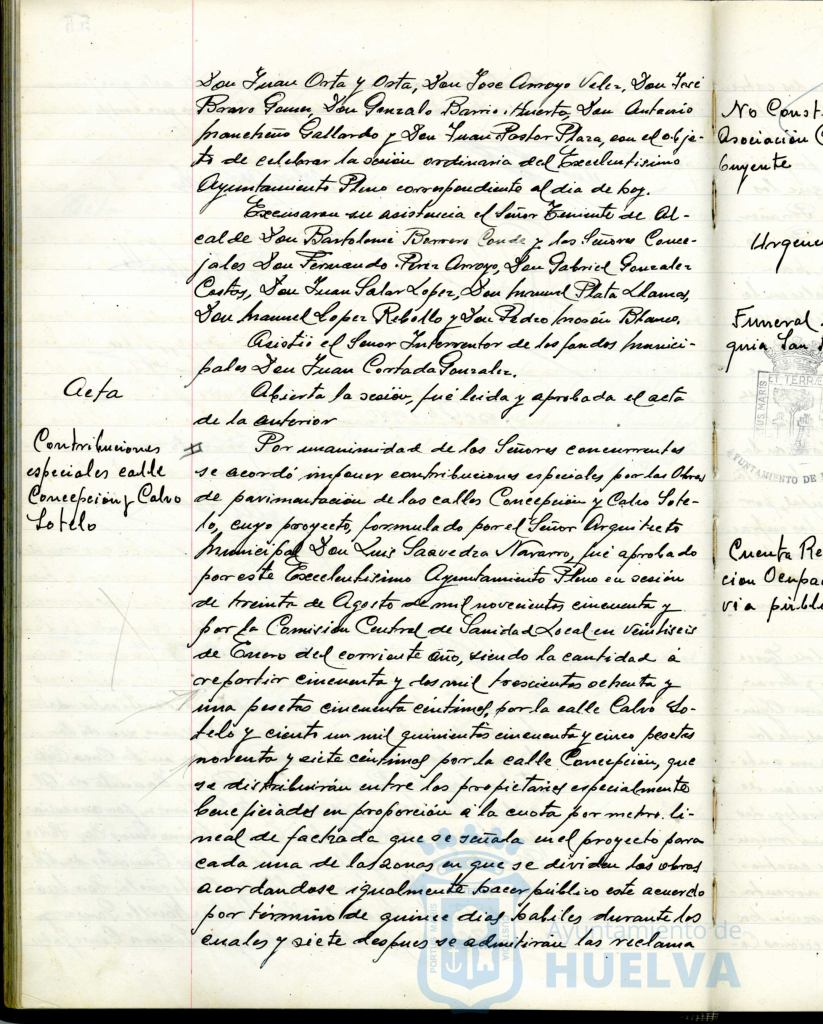 Don Juan Orta y Orta, Don Jose Arroyo Velez, Don José
Bravo Gomez, Don Gonzalo Barrio Huerta, Don Antonio
Mancheño Gallardo y Don Juan Pastor Plaza, con el obje-
to de celebrar la sesión ordinaria del Excelentisimo
Ayuntamiento Pleno correspondiente al dia de hoy.
Excusaron su asistencia el Señor Teniente de Al-
calde Don Bartolomé Borrero Conde y los Señores Conce-
jales Don Fernando Perez Arroyo, Don Gabriel Gonzalez
Costas, Don Juan Salar Lopez, Don Manuel Plata Llamas,
Don Manuel Lopez Rebollo y Don Pedro Morón Blanco.
Asistió el Señor Interventor de los fondos munici-
pales Don Juan Cortada Gonzalez.
Acta
Abierta la sesión, fué leida y aprobada el acta
de la anterior
Contribuciones
especiales calle
Concepción y Calvo
Sotelo
Por unanimidad de los Señores concurrentes
se acordó imponer contribuciones especiales por las Obras
de pavimentación de las calles Concepción y Calvo Sote-
lo, cuyo proyecto, formulado por el Señor Arquitecto
Municipal Don Luis Saavedra Navarro, fué aprobado
por este Excelentisimo Ayuntamiento Pleno en sesión
de treinta de Agosto de mil novecientos cincuenta y
por la Comisión Central de Sanidad Local en veintiseis
de Enero del corriente año, siendo la cantidad á
repartir cincuenta y dos mil trescientas ochenta y
una pesetas cincuenta céntimos, por la calle Calvo So-
telo y ciento un mil quinientos cincuenta y cinco pesetas
noventa y siete céntimos por la calle Concepción, que
se distribuirán entre los propietarios especialmente
beneficiados en proporción á la cuota por metro li-
neal de fachada que se señala en el proyecto para
cada una de las zonas en que se dividen las obras
acordandose igualmente hacer público este acuerdo
por término de quince dias habiles durante los
cuales y siete despues se admitirán las reclama
No Const
Asociación C
buyente
Urgenc
Funeral
quia San
ET TERRÆ
TUS MARIS
AYUNTAMIENTO DE
Cuenta Re
cion Ocupac
via públi
PORTUS MARIS
Ayuntamiento de
HUELVA